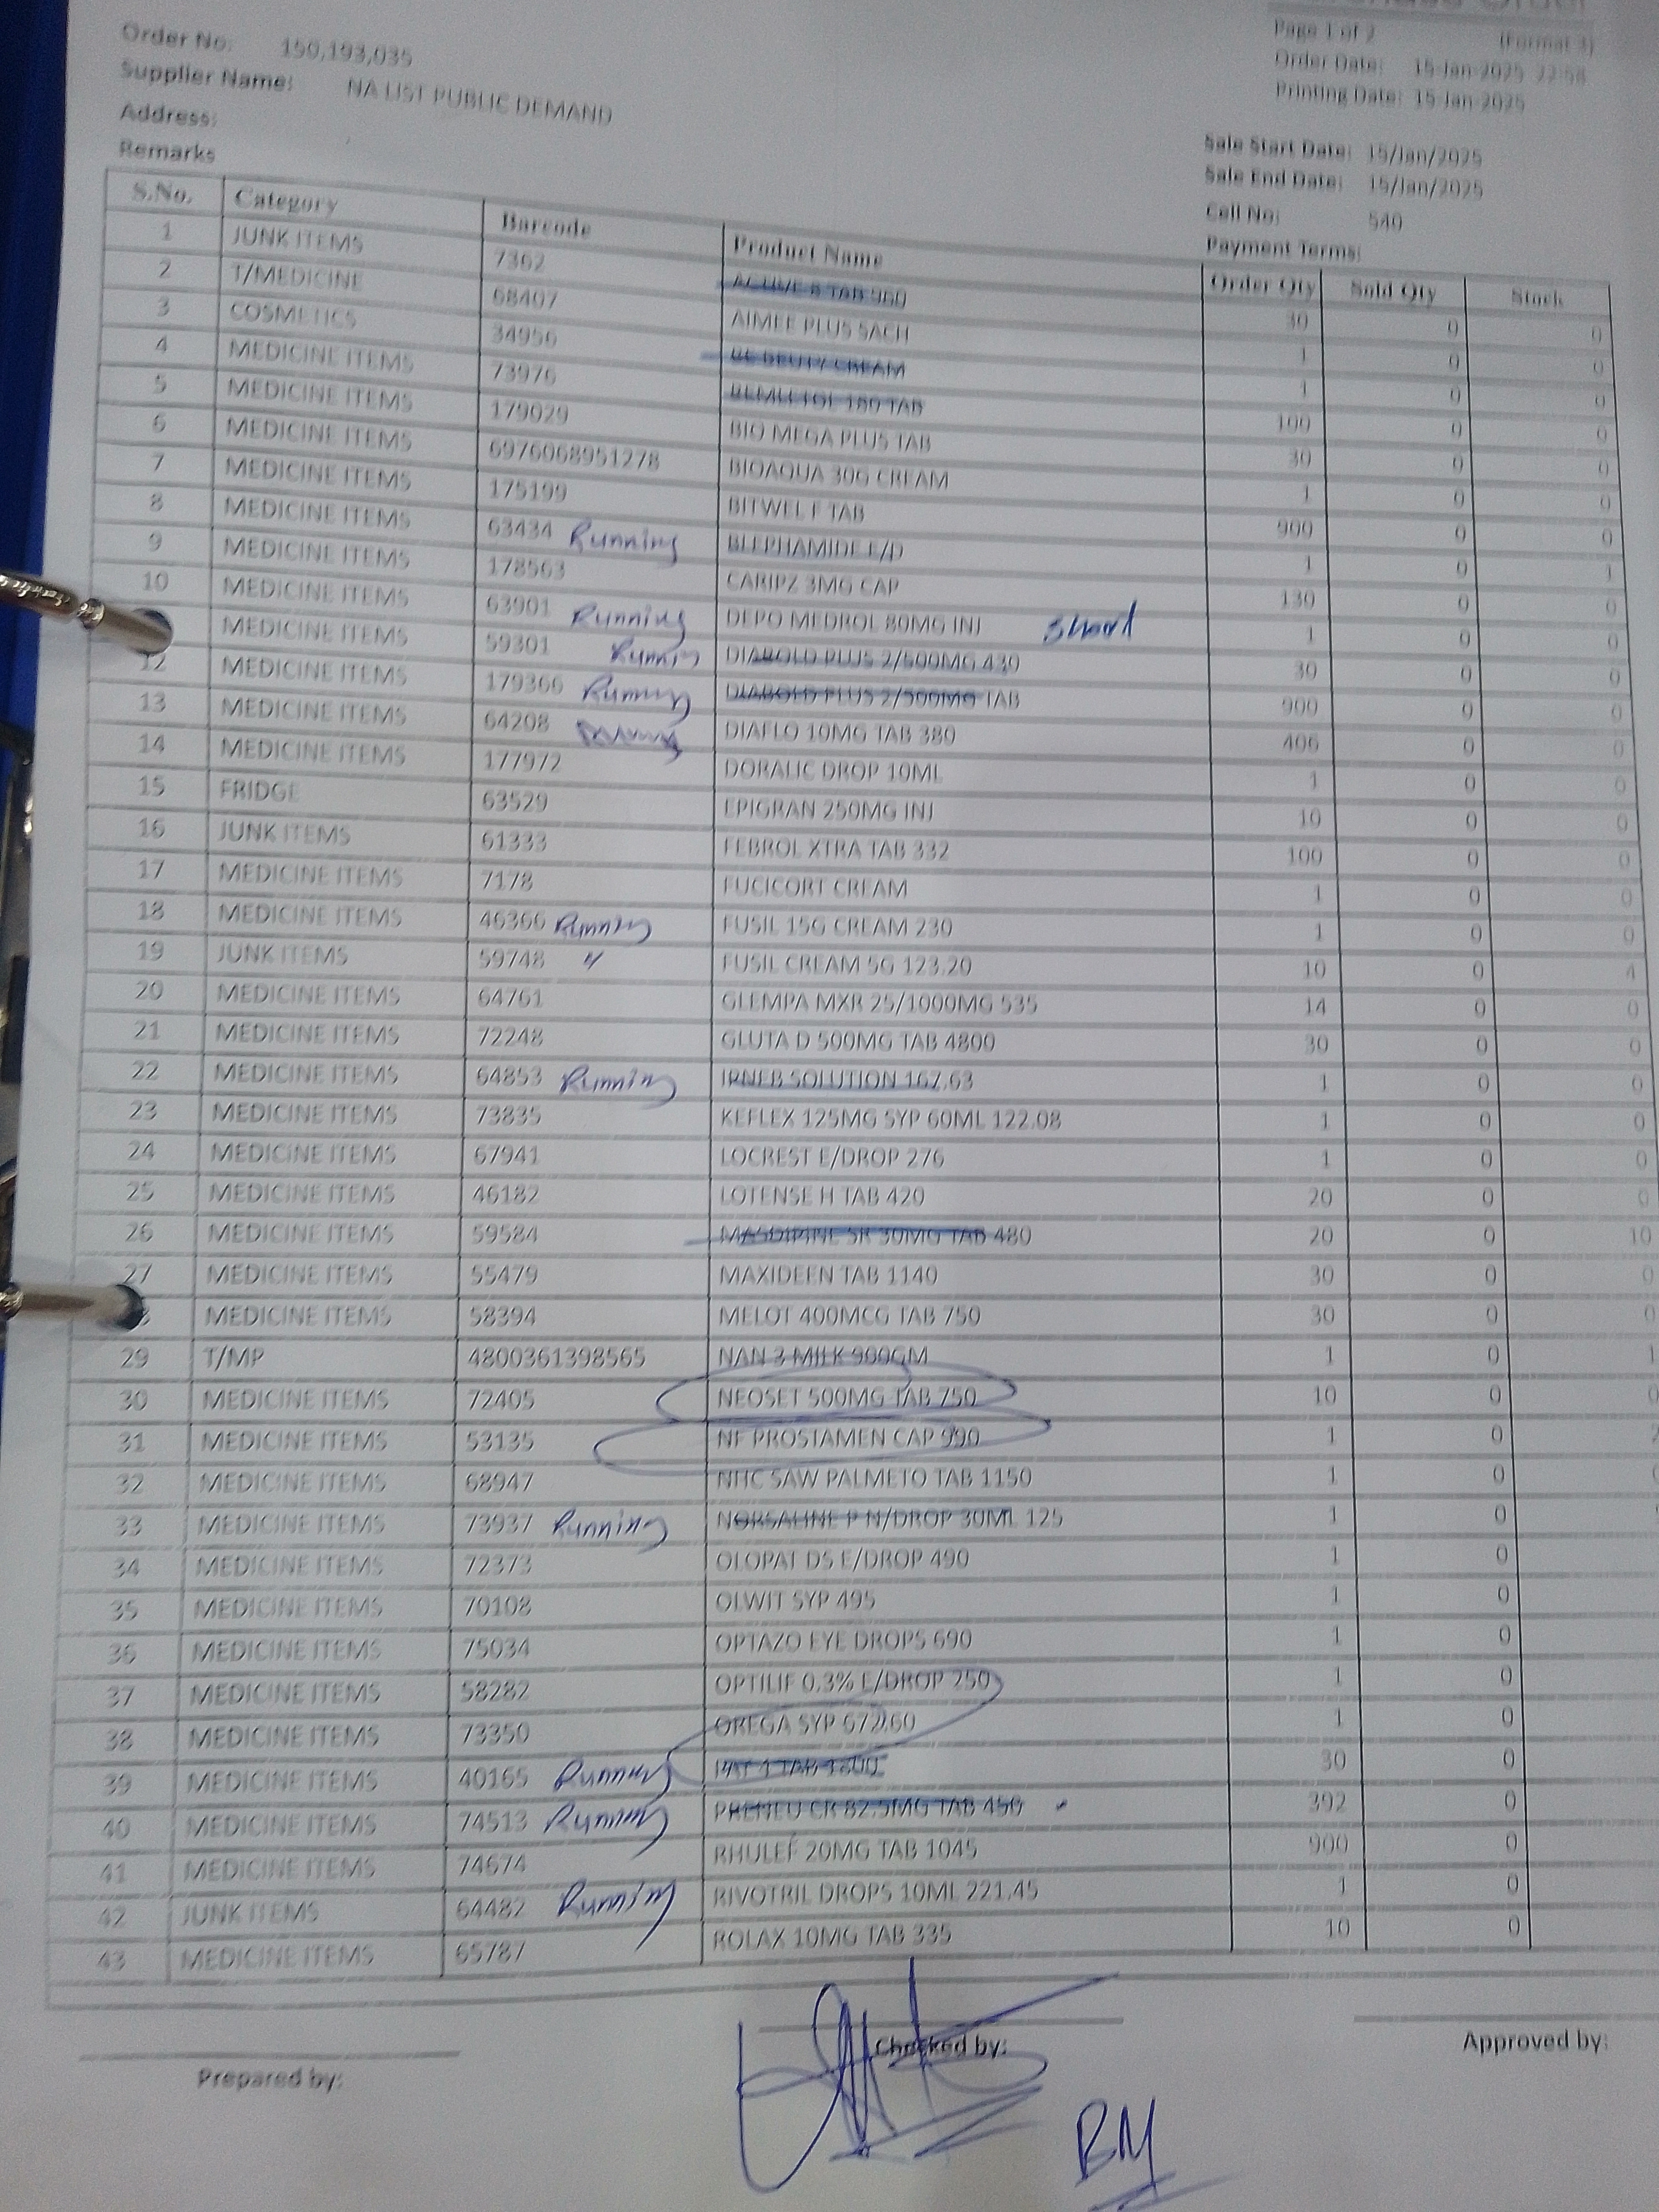 Page 1 of 2 (Format 3)
Order No: 150,193,035
Order Date: 15-Jan-2025 22:58
Supplier Name: NA LIST PUBLIC DEMAND
Printing Date: 15-Jan-2025
Address:
Sale Start Date: 15/Jan/2025
Remarks
Sale End Date: 15/Jan/2025
Cell No: 540
Payment Terms:
S.No. Category Barcode Product Name Order Qty Sold Qty Stock
1 JUNK ITEMS 7362 TAB 900 30 0 0
2 T/MEDICINE 68407 AIMEE PLUS SACH 1 0 0
3 COSMETICS 34956 BE BEUTY CREAM 1 0 0
4 MEDICINE ITEMS 73976 180 TAB 100 0 0
5 MEDICINE ITEMS 179029 BIO MEGA PLUS TAB 30 0 0
6 MEDICINE ITEMS 6976068951278 BIOAQUA 30G CREAM 1 0 0
7 MEDICINE ITEMS 175199 BITWEL F TAB 900 0 0
8 MEDICINE ITEMS 63434 Running BLEPHAMIDE E/D 1 0 1
9 MEDICINE ITEMS 178563 CARIPZ 3MG CAP 130 0 0
10 MEDICINE ITEMS 63901 Running DEPO MEDROL 80MG INJ Short 1 0 0
MEDICINE ITEMS 59301 Runnin DIABOLD PLUS 2/500MG 430 30 0 0
12 MEDICINE ITEMS 179366 Running DIABOLD PLUS 2/500MG TAB 900 0 0
13 MEDICINE ITEMS 64208 DIAFLO 10MG TAB 380 406 0 0
14 MEDICINE ITEMS 177972 DORALIC DROP 10ML 1 0 0
15 FRIDGE 63529 EPIGRAN 250MG INJ 10 0 0
16 JUNK ITEMS 61333 FEBROL XTRA TAB 332 100 0 0
17 MEDICINE ITEMS 7178 FUCICORT CREAM 1 0 0
18 MEDICINE ITEMS 46366 Running FUSIL 15G CREAM 230 1 0 0
19 JUNK ITEMS 59748 〃 FUSIL CREAM 5G 123.20 10 0 4
20 MEDICINE ITEMS 64761 GLEMPA MXR 25/1000MG 535 14 0 0
21 MEDICINE ITEMS 72248 GLUTA D 500MG TAB 4800 30 0 0
22 MEDICINE ITEMS 64853 Running IPNEB SOLUTION 167.63 1 0 0
23 MEDICINE ITEMS 73835 KEFLEX 125MG SYP 60ML 122.08 1 0 0
24 MEDICINE ITEMS 67941 LOCREST E/DROP 276 1 0 0
25 MEDICINE ITEMS 46182 LOTENSE H TAB 420 20 0 0
26 MEDICINE ITEMS 59584 MASDIPINE SR 30MG TAB 480 20 0 10
27 MEDICINE ITEMS 55479 MAXIDEEN TAB 1140 30 0 0
MEDICINE ITEMS 58394 MELOT 400MCG TAB 750 30 0 0
29 T/MP 4800361398565 NAN 3 MILK 900GM 1 0 1
30 MEDICINE ITEMS 72405 NEOSET 500MG TAB 750 10 0 0
31 MEDICINE ITEMS 53135 NF PROSTAMEN CAP 990 1 0 2
32 MEDICINE ITEMS 68947 NHC SAW PALMETO TAB 1150 1 0
33 MEDICINE ITEMS 73937 Running NORSALINE P N/DROP 30ML 125 1 0
34 MEDICINE ITEMS 72373 OLOPAT DS E/DROP 490 1 0
35 MEDICINE ITEMS 70108 OLWIT SYP 495 1 0
36 MEDICINE ITEMS 75034 OPTAZO EYE DROPS 690 1 0
37 MEDICINE ITEMS 58282 OPTILIF 0.3% E/DROP 250 1 0
38 MEDICINE ITEMS 73350 OREGA SYP 672.60 1 0
39 MEDICINE ITEMS 40165 Running TAB 30 0
40 MEDICINE ITEMS 74513 Running PRENEU CR 82.5MG TAB 450 392 0
41 MEDICINE ITEMS 74674 RHULEF 20MG TAB 1045 900 0
42 JUNK ITEMS 64482 Running RIVOTRIL DROPS 10ML 221.45 1 0
43 MEDICINE ITEMS 65787 ROLAX 10MG TAB 335 10 0
Prepared by: Checked by: Approved by:
BM